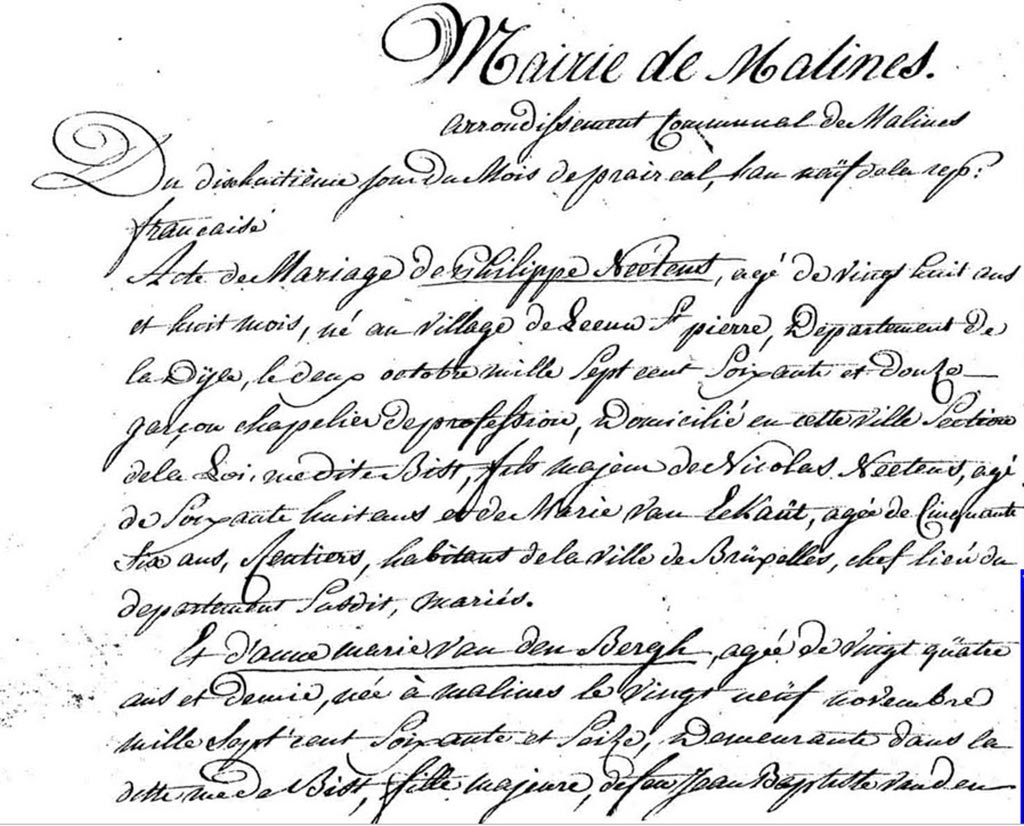 Mairie de Malines.
arrondissement Communal de Malines
Du dixhuitiéme jour du Mois de prairéal, l'an neüf de la rep:
francaisé
Acte de Mariage de Philippe Neétens, agé de vingt huit ans
et huit mois, né au village de Leeuw St pierre, Departement de
la Dÿle, le deux octobre mille Sept cent Soixante et douze
garçon chapelier de profession, Domicilié en cette ville Section
de la Loi, rue dite Bist, fils majeur de Nicolas Neetens, agé
de Soixante huit ans et de Marie Van Eekaüt, agée de Cinquante
Six ans, Rentiers, habitans de la ville de Brüxelles, chef lieu du
departement Susdit, mariés.
Et d'anne marie Van den Bergh, agée de vingt quatre
ans et demie, née à malines le vingt neüf novembre
mille Sept cent Soixante et Seize, Demeurante dans la
ditte rue de Bist, fille majeure, de feu Jean Baptiste Van den